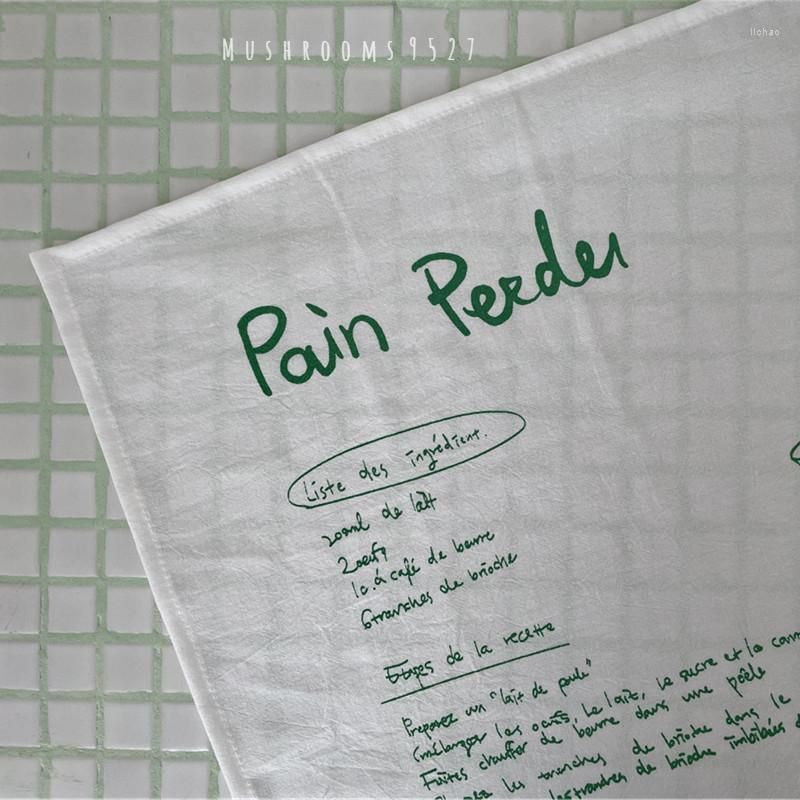 MUSHROOMS9527
llohao
Pain Perdu
Liste des ingrédient.
200ml de lait
2oeufs
1c.à café de beurre
6tranches de brioche
Etapes de la recette
Preparez un "lait de poule"
(mélanger les oeufs, le lait, le sucre et la cann
Faites chauffer de beurre dans une poêle
les tranches de brioche dans le
les tranches de brioche imbibées d